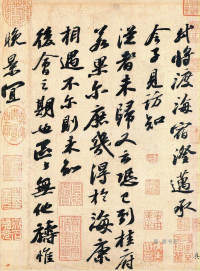 軾將渡海宿澄邁承
令子見訪知
從者未歸又云恐已到桂府
若果爾庶幾得於海康
相遇不爾則未知
後會之期也區區無他禱惟
晚景宜